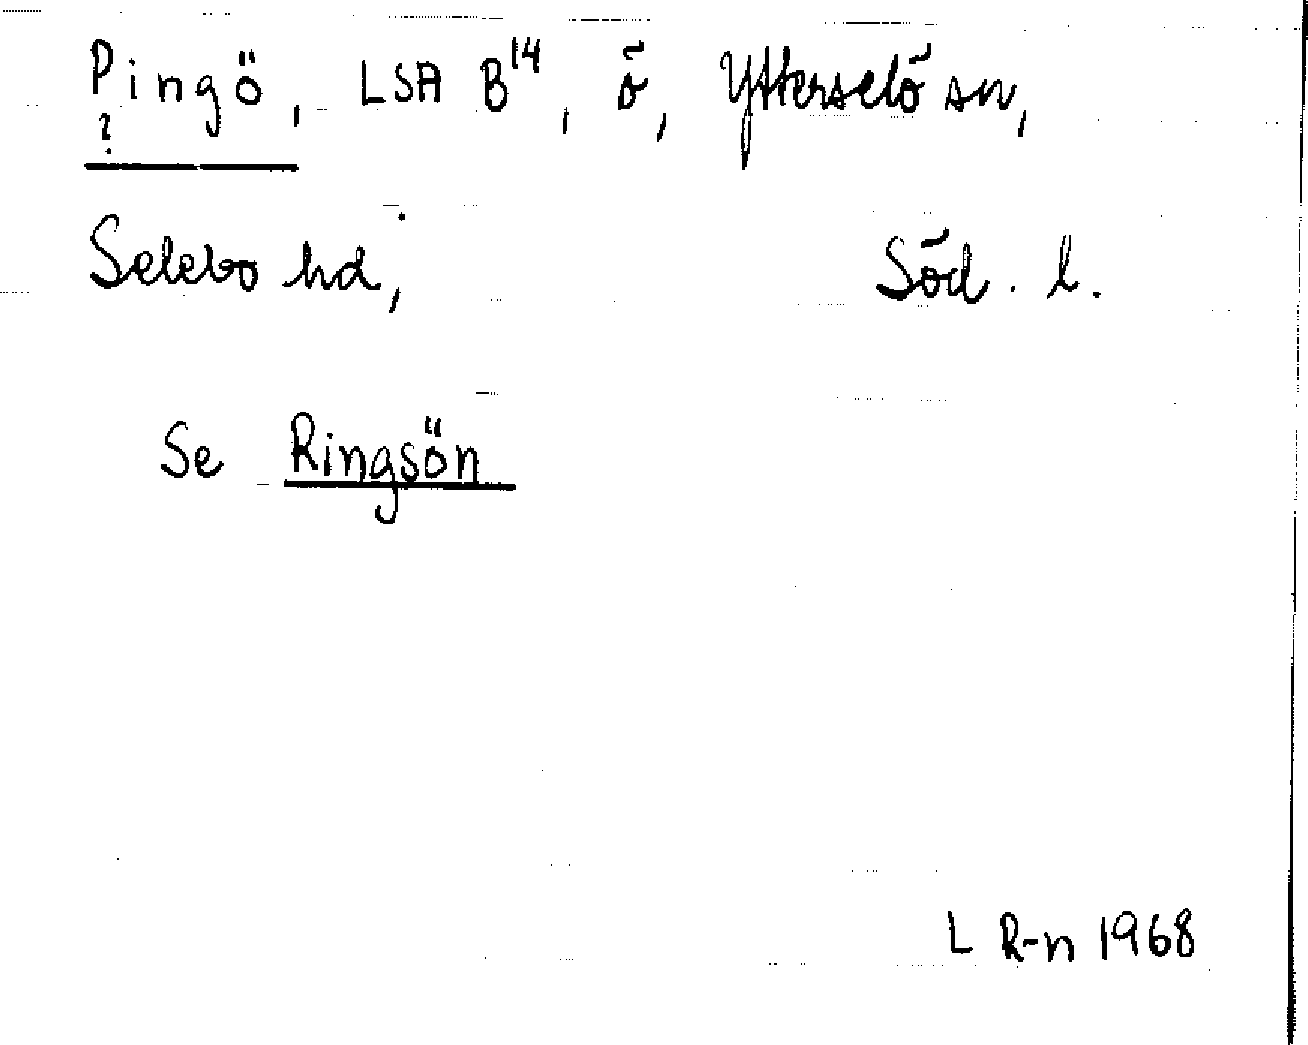 Pingö, LSA B¹⁴, ö, Ytterselö sn,
?
Selebo hd, Söd. l.
Se Ringsön
L R-n 1968